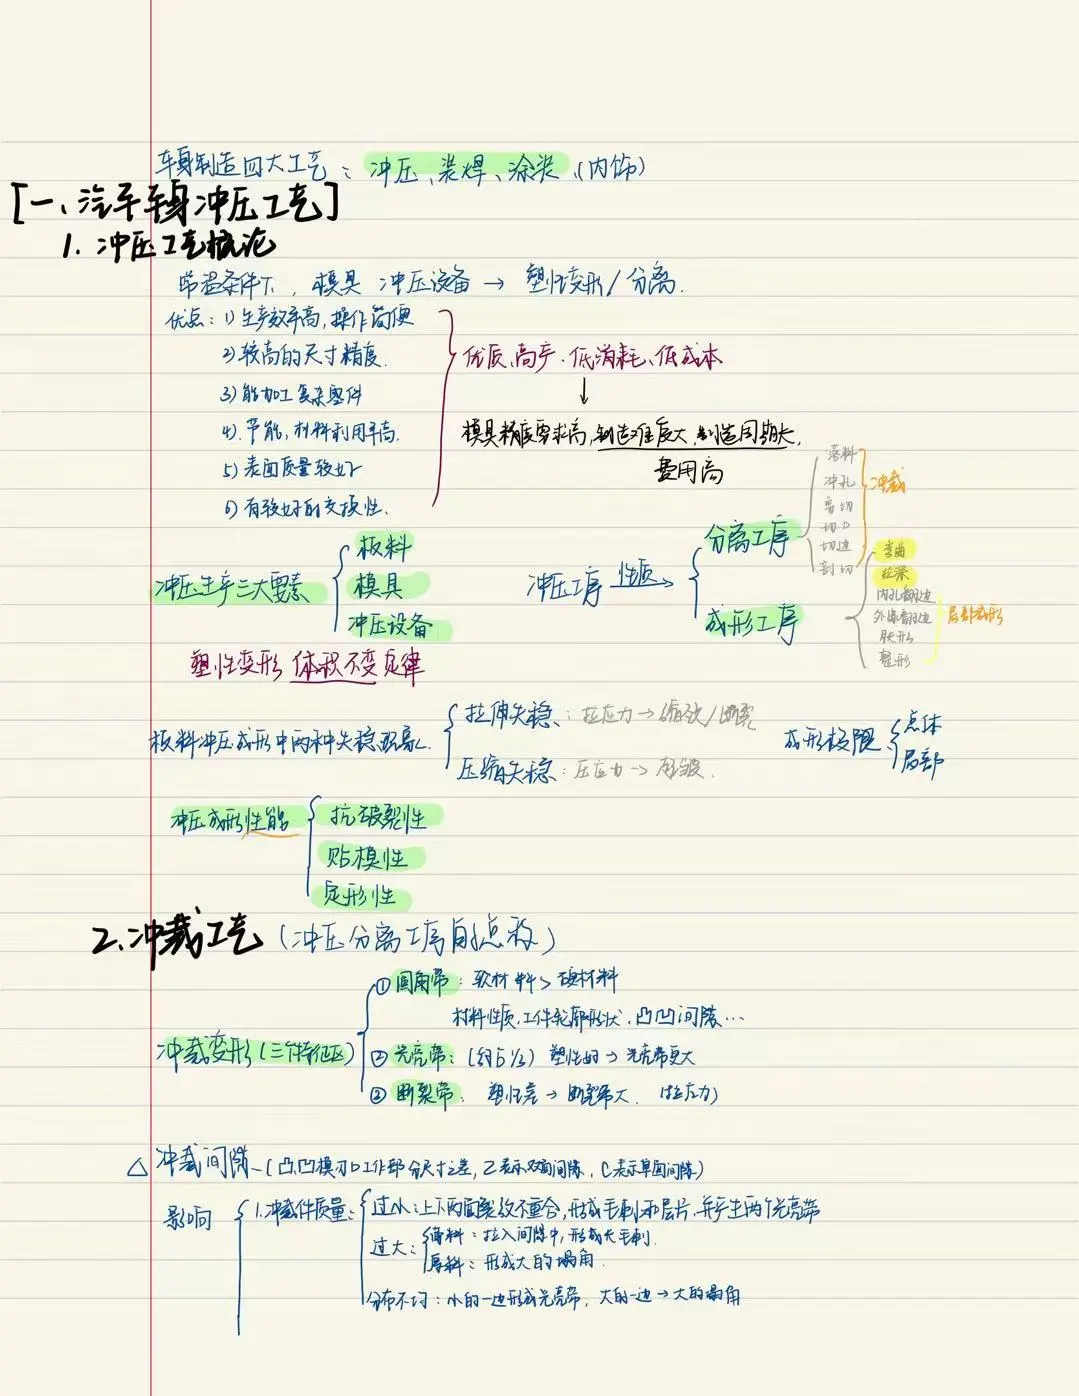 车身制造四大工艺：冲压、装焊、涂装、(内饰)
[一、汽车车身冲压工艺]
1. 冲压工艺概论
常温条件下，模具 冲压设备 → 塑性变形/分离.
优点：1) 生产效率高，操作简便
2) 较高的尺寸精度.
3) 能加工复杂零件
4) 节能，材料利用率高.
5) 表面质量较好
6) 有较好的交换性.
优质、高产、低消耗、低成本
↓
模具精度要求高，制造难度大，制造周期长，
费用高
冲压生产三大要素
板料
模具
冲压设备
冲压工序 性质→
分离工序
落料
冲孔
剪切
切口
切边
剖切
冲裁
成形工序
弯曲
拉深
内孔翻边
外缘翻边
胀形
整形
局部成形
塑性变形 体积不变定律
板料冲压成形中两种失稳现象
拉伸失稳：拉应力→缩颈/断裂
压缩失稳：压应力→起皱.
成形极限
总体
局部
冲压成形性能
抗破裂性
贴模性
定形性
2. 冲裁工艺 (冲压分离工序的总称)
冲裁变形(三个特征区)
① 圆角带：软材料>硬材料
材料性质，工件轮廓形状，凸凹间隙…
② 光亮带：(约占1/3) 塑性好→光亮带更大
② 断裂带：塑性差→断裂带大. (拉应力)
△ 冲裁间隙-(凸、凹模刃口工作部分尺寸之差，Z表示双面间隙，C表示单面间隙)
影响
1. 冲裁件质量：
过小：上下两面裂纹不重合，形成毛刺和层片，并产生两个光亮带
过大：
薄料：拉入间隙中，形成长毛刺.
厚料：形成大的塌角.
分布不均：小的一边形成光亮带，大的一边→大的塌角